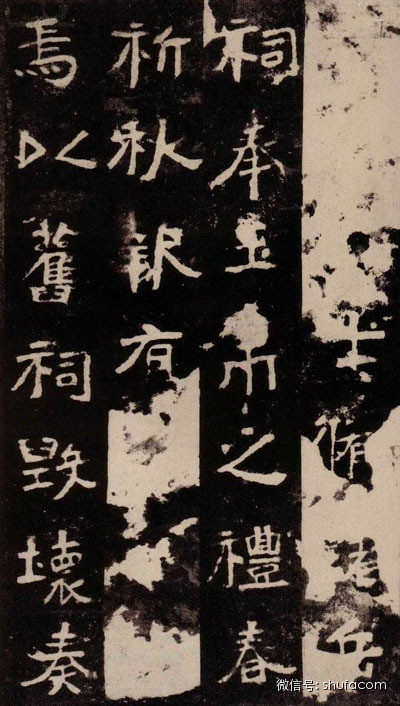 脩岳
祠奉玉帛之禮春
祈秋報有
焉以舊祠毀壞奏
微信号: shufacom